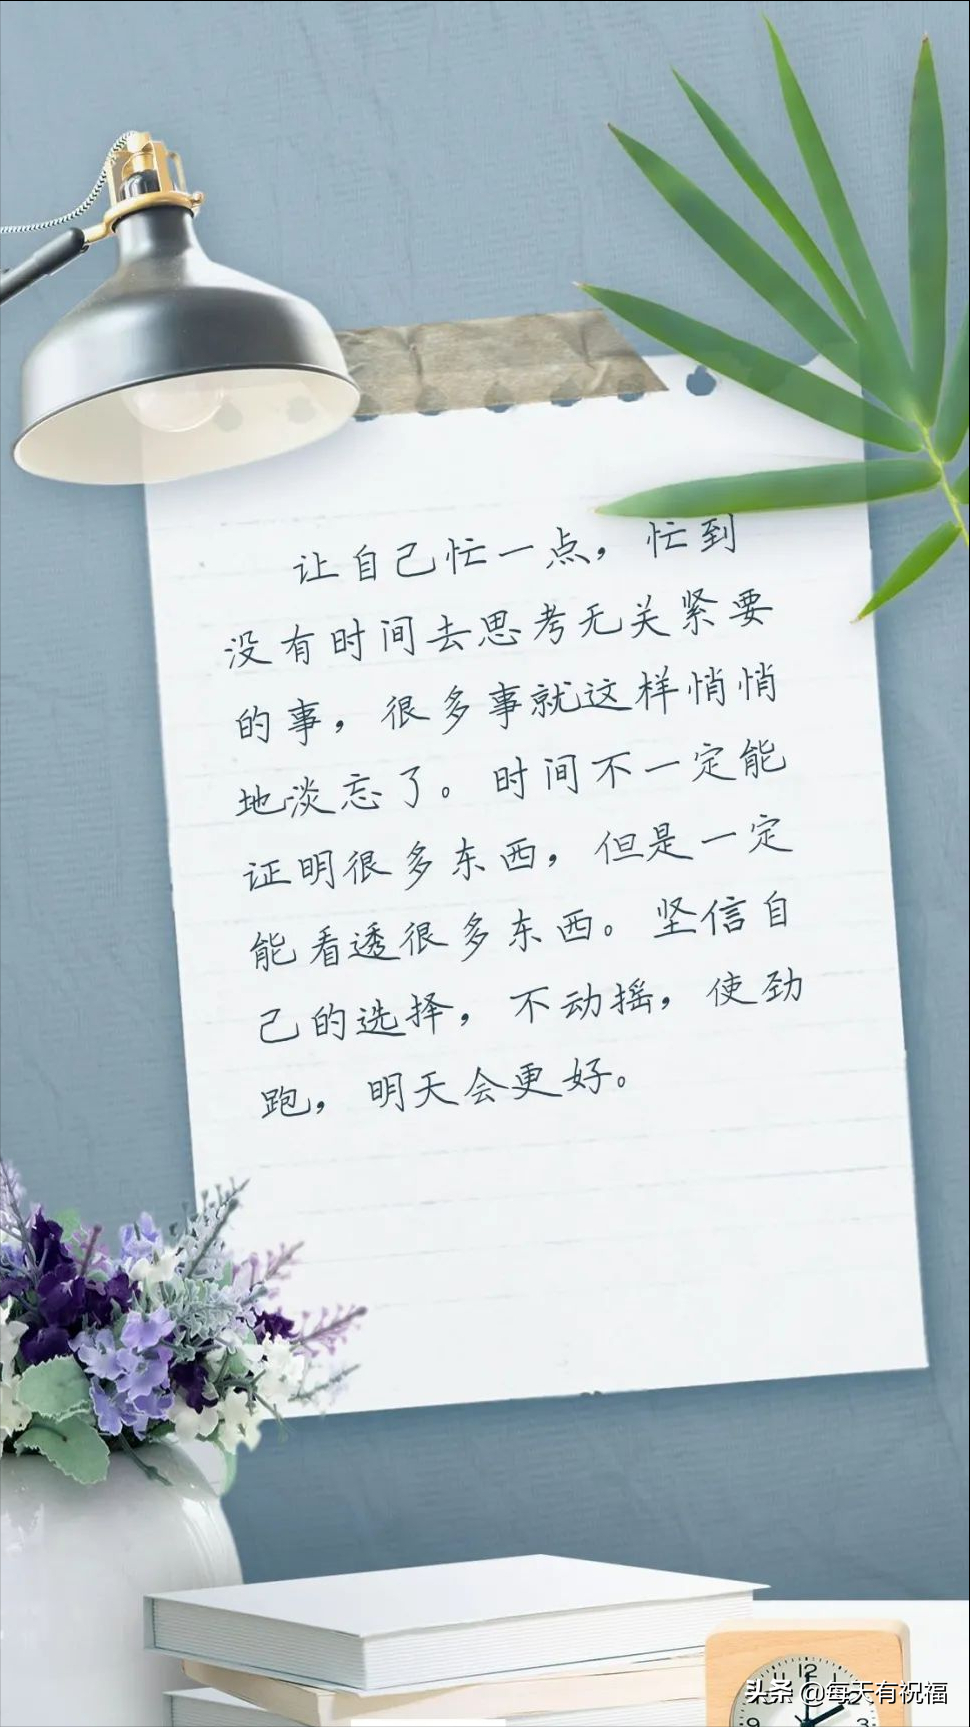 让自己忙一点，忙到
没有时间去思考无关紧要
的事，很多事就这样悄悄
地淡忘了。时间不一定能
证明很多东西，但是一定
能看透很多东西。坚信自
己的选择，不动摇，使劲
跑，明天会更好。
12
头条 @每天有祝福
9 3